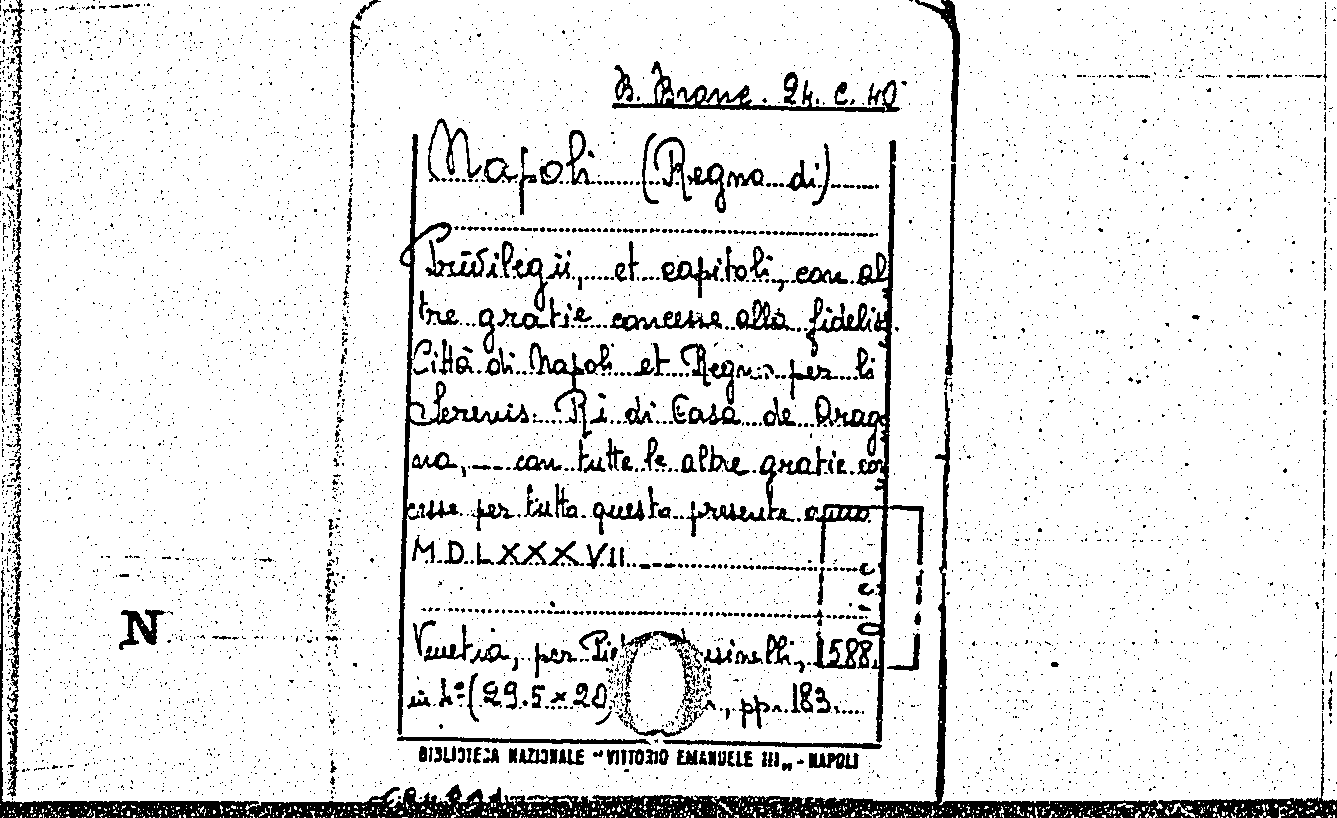 B. Branc. 24. C. 40
Napoli (Regno di)
Privilegii, et capitoli, con al
tre gratie concesse alla fideliss.
Città di Napoli et Regno per li
Serenis. Ri di Casa de Arago
na, con tutte le altre gratie con
cesse per tutto questo presente anno
MDLXXXVII
N
Venetia, per 1588.
in 4º (29.5 × 20) pp. 183.
BIBLIOTECA NAZIONALE "VITTORIO EMANUELE III„ - NAPOLI